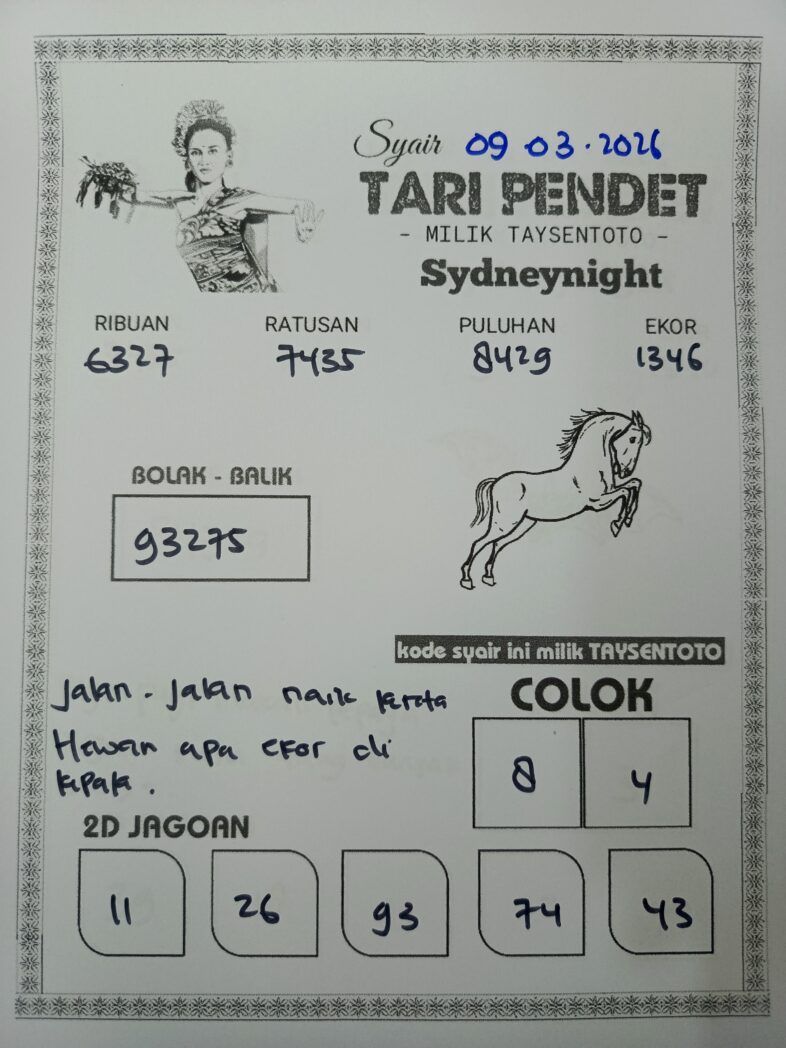 Syair 09.03.2026
TARI PENDET
- MILIK TAYSENTOTO -
Sydneynight
RIBUAN RATUSAN PULUHAN EKOR
6327 7435 8429 1346
BOLAK - BALIK
93275
kode syair ini milik TAYSENTOTO
Jalan - Jalan naik kereta
Hewan apa ekor di
kepala .
COLOK
8 4
2D JAGOAN
11 26 93 74 43